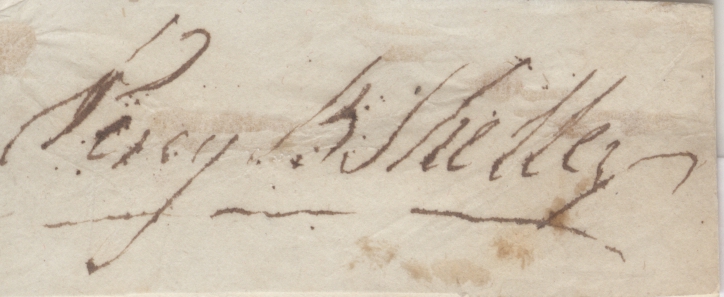 Percy B Shelley